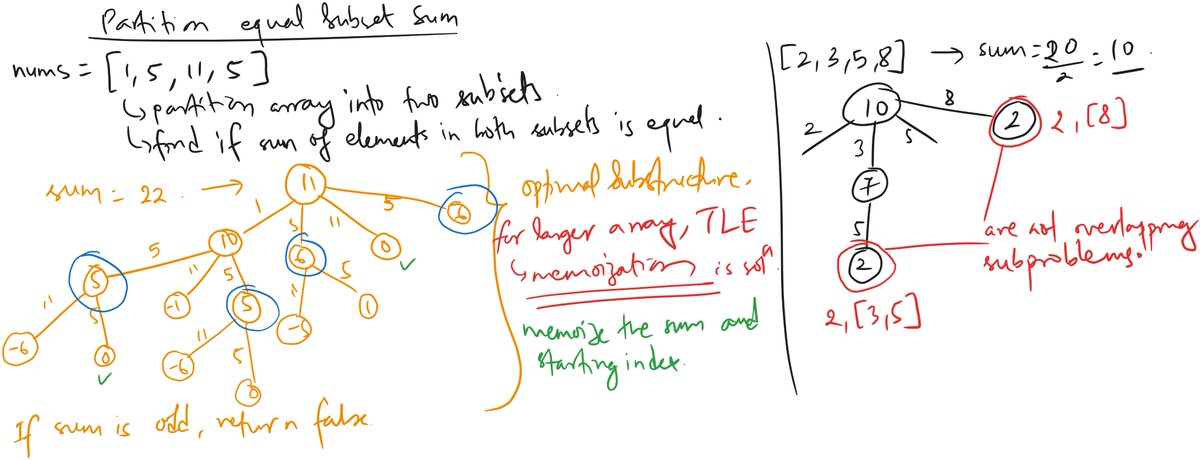 Partition equal Subset Sum
nums = [1, 5, 11, 5]
↳ partition array into two subsets.
↳ find if sum of elements in both subsets is equal.
sum = 22 → 11
1 5 11 5
10 6 0 ✓ 6
5 11 5 11 5
5 -1 5 -5 1
11 5 11 5
-6 0 ✓ -6 0
If sum is odd, return false.
optimal substructure.
for larger array, TLE
↳ memoization is solⁿ
memoize the sum and
starting index.
[2, 3, 5, 8] → sum = 20/2 = 10.
10
2 3 5 8
7 2 2, [8]
5
2
2, [3,5]
are not overlapping
subproblems.